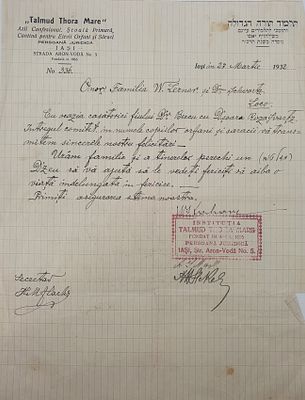 "Talmud Thora Mare"
Azil Confesional, Școală Primară,
Cantină pentru Elevii Orfani și Săraci
PERSOANĂ JURIDICĂ
IAȘI
STRADA ARON-VODĂ No. 5
Fondată în 1865
No. 336
תלמוד תורה הגדולה
Iași 29 Martie 1932
Onor. Familia W. Lerner și Dr Schwartz
Loco.
Cu ocazia căsătoriei fiului Dv Bucu cu Dșoara Roza Svartz
Întregul comitet, în numele copiilor orfani și săraci vă trans-
mitem sincerele noastre felicitări.
Urăm familiei și a tinerilor perechi un
D-zeu să vă ajute să le vedeți fericiți să aibă o
viață îndelungată în fericire.
Primiți asigurarea stimei noastre.
INSTITUȚIA
TALMUD THORA MARE
FONDAT ÎN ANUL 1865
PERSOANĂ JURIDICĂ
IAȘI, Str. Aron-Vodă No. 5.
Secretar